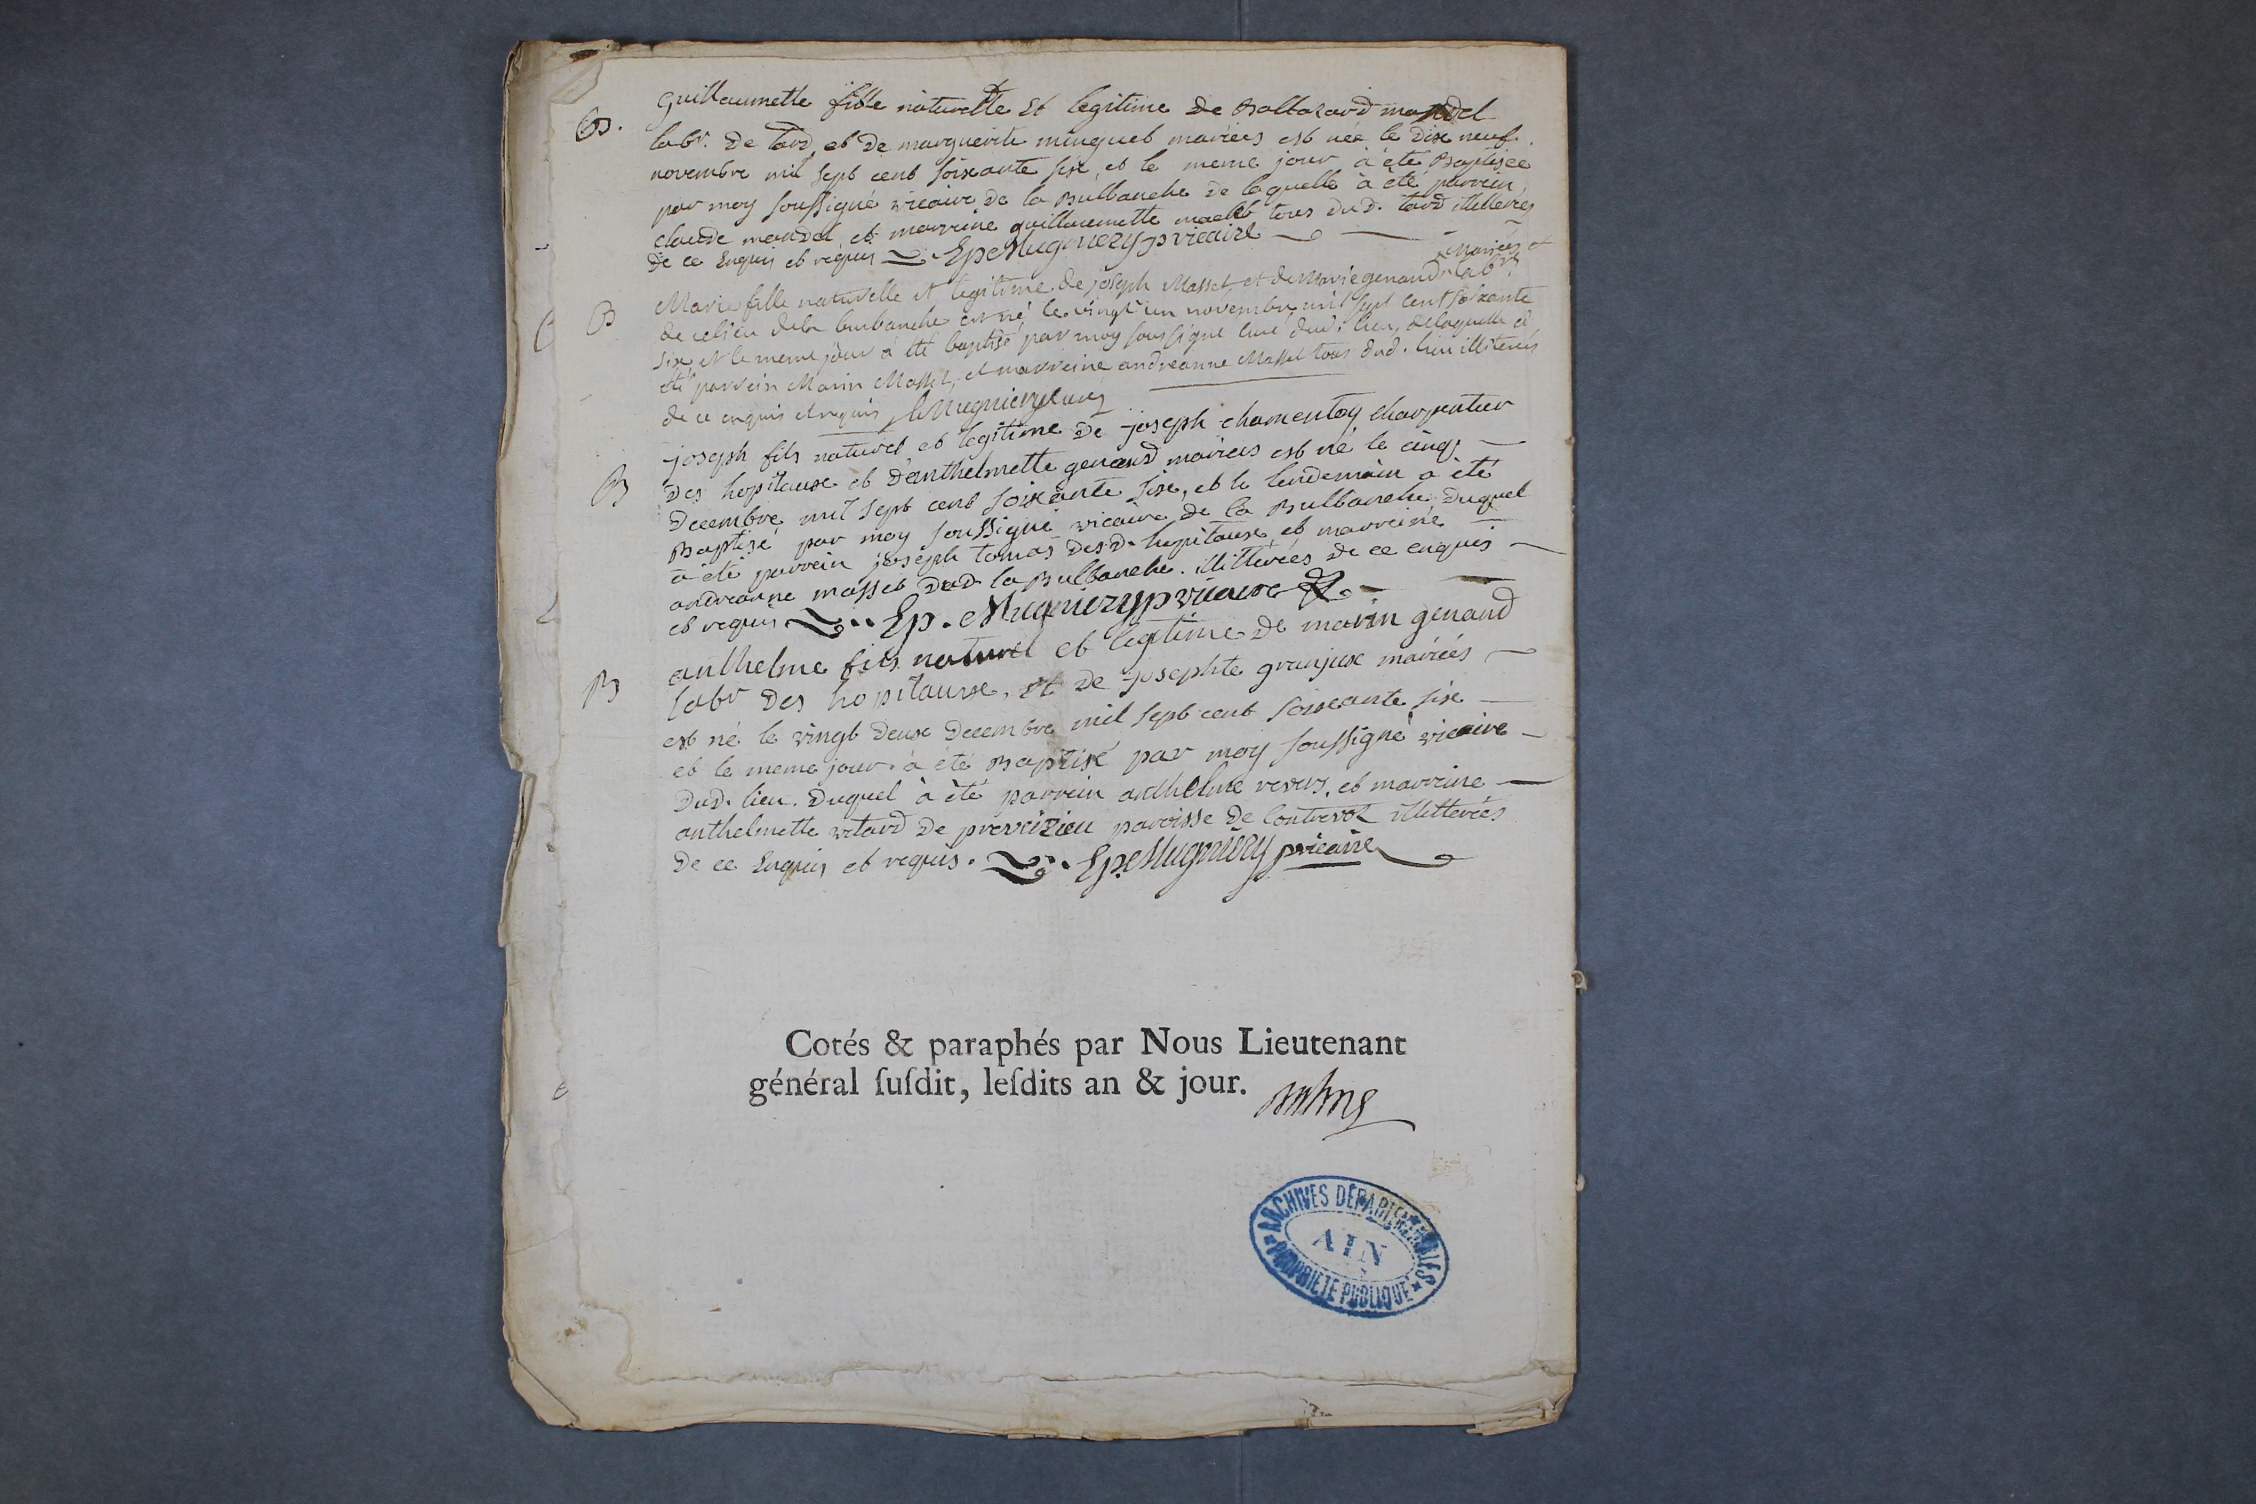 B.
guillaumette fille naturelle et legitime de Baltazard mandel
labr. de tard, et de marguerite minguet mariées est née le dix neuf
novembre mil sept cent soixante six, et le meme jour à été Baptisée
par moy soussigné vicaire de la Bulbanche de laquelle à été parrein
claude mandel, et marrine guillaumette tous dud. tard illitérés
de ce Enquis et requis Ep Mugniery p vicaire
Mariés et
B
Marie fille naturelle et legitime de joseph Masset et de Marie genand labrs
de ce lieu de la burbanche est né le vingt un novembre mil sept cent soixante
six et le meme jour a été baptisé par moy soussigné curé dud. lieu, de laquelle a
été parrein Marin Masset, et marreine andreanne Masset tous dud. lieu illiterés
de ce enquis et requis Mugniery curé
B
joseph fils naturel et legitime de joseph chamentoy charpentier
des hopitaux et d'anthelmette genand mariees est né le cinq
decembre mil sept cent soixante six, et le lendemain a été
Baptisé par moy soussigné vicaire de la Bulbanche duquel
à été parrein joseph tomas des d. hopitaux et marreine
andreanne masset dud. la Bulbanche. illitérées de ce enquis
et requis Ep. Mugniery p vicaire
B
anthelme fils naturel et legitime de marin genand
labr des hopitaux, et de josephte granjux mariées
est né le vingt deux decembre mil sept cent soixante six
et le meme jour à été Baptisé par moy soussigné vicaire
dud. lieu. duquel à été parrein anthelme et marreine
anthelmette vitard de preveizieu paroisse de Contrevoz illitterées
de ce Enquis et requis. Ep. Mugniery p vicaire
Cotés & paraphés par Nous Lieutenant
général susdit, lesdits an & jour.
ARCHIVES DÉPARTEMENTALES
AIN
PROPRIÉTÉ PUBLIQUE